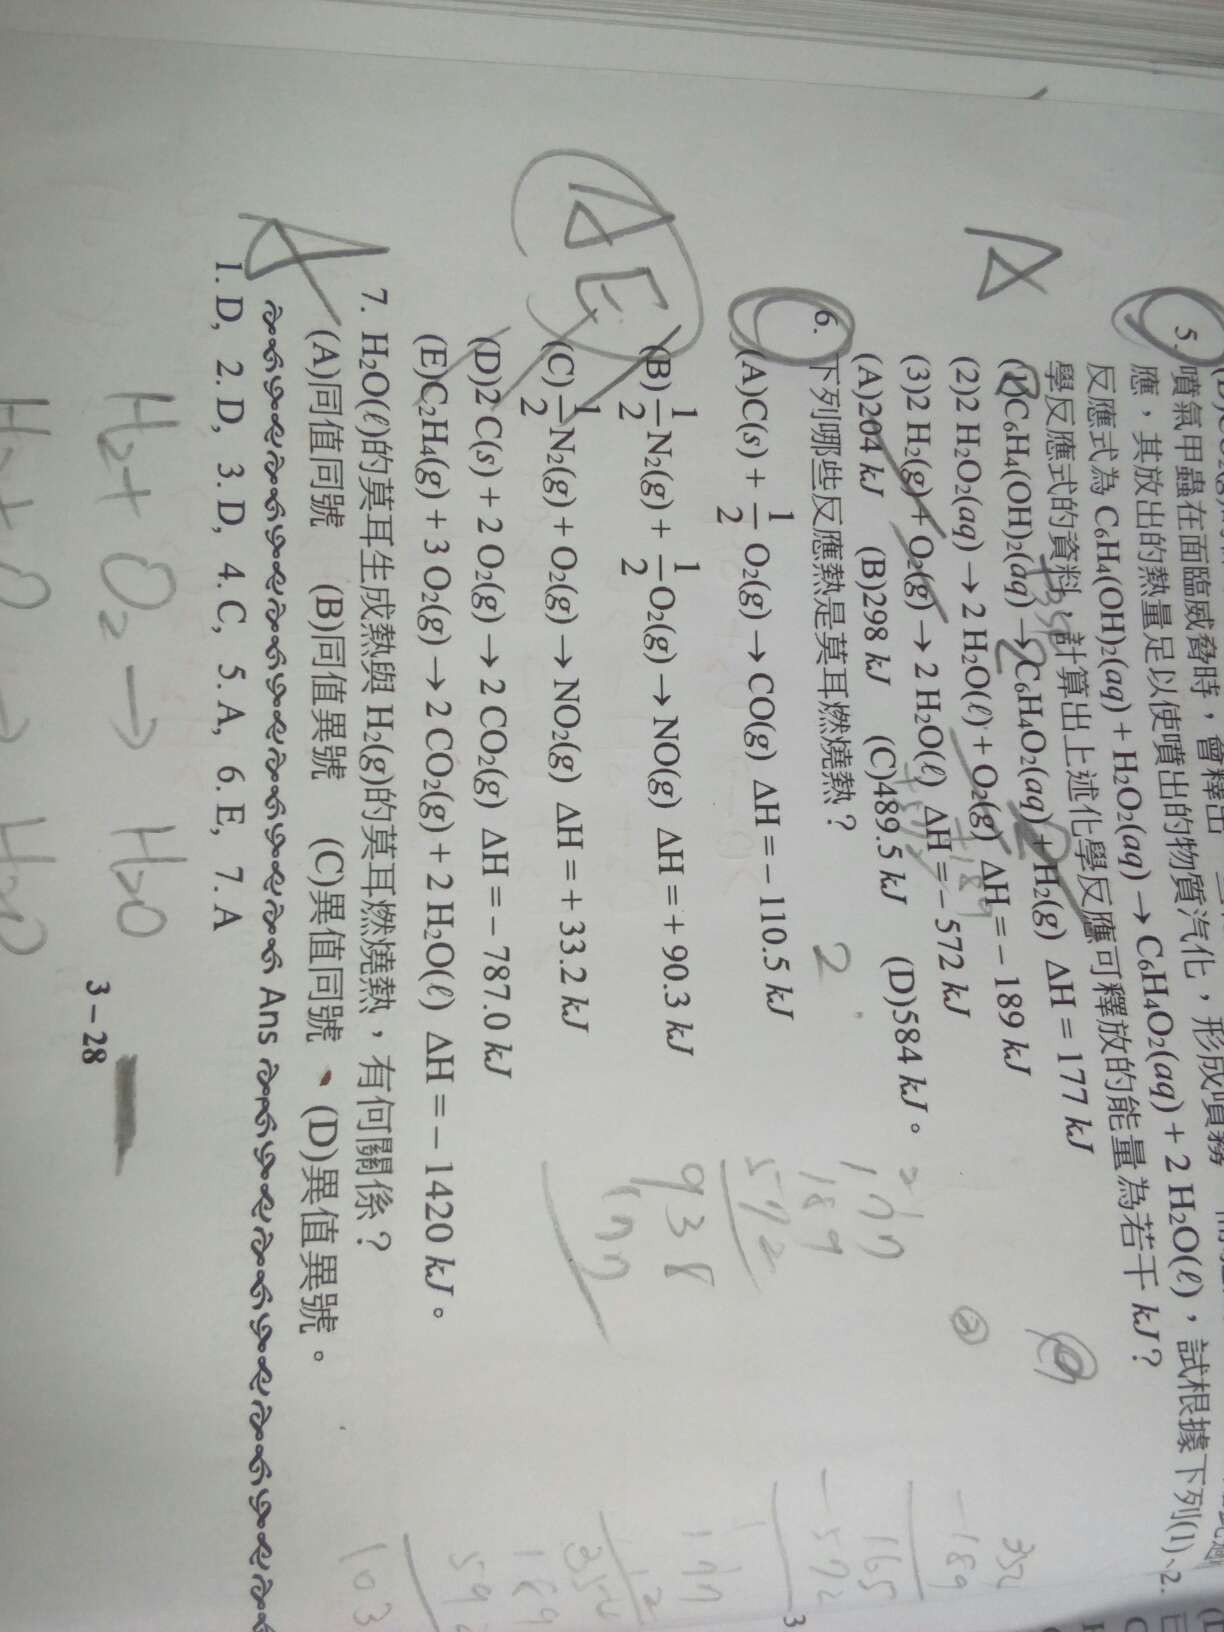 5. 噴氣甲蟲在面臨威脅時，會釋出
應，其放出的熱量足以使噴出的物質汽化，形成噴霧
反應式為 C₆H₄(OH)₂(aq) + H₂O₂(aq) → C₆H₄O₂(aq) + 2 H₂O(ℓ)，試根據下列(1)、2.
學反應式的資料，計算出上述化學反應可釋放的能量為若干 kJ？
(1)C₆H₄(OH)₂(aq) → C₆H₄O₂(aq) + H₂(g) ΔH = 177 kJ
(2)2 H₂O₂(aq) → 2 H₂O(ℓ) + O₂(g) ΔH = − 189 kJ
(3)2 H₂(g) + O₂(g) → 2 H₂O(ℓ) ΔH = − 572 kJ
(A)204 kJ (B)298 kJ (C)489.5 kJ (D)584 kJ。
A
6. 下列哪些反應熱是莫耳燃燒熱？
2
(A)C(s) + 1/2 O₂(g) → CO(g) ΔH = − 110.5 kJ
(B)1/2 N₂(g) + 1/2 O₂(g) → NO(g) ΔH = + 90.3 kJ
(C)1/2 N₂(g) + O₂(g) → NO₂(g) ΔH = + 33.2 kJ
(D)2 C(s) + 2 O₂(g) → 2 CO₂(g) ΔH = − 787.0 kJ
(E)C₂H₄(g) + 3 O₂(g) → 2 CO₂(g) + 2 H₂O(ℓ) ΔH = − 1420 kJ。
A E
7. H₂O(ℓ)的莫耳生成熱與 H₂(g)的莫耳燃燒熱，有何關係？
(A)同值同號 (B)同值異號 (C)異值同號 (D)異值異號。
A
177
189
572
938
177
352
-189
165
-572
177
2
352
189
103
Ans
1. D, 2. D, 3. D, 4. C, 5. A, 6. E, 7. A
H₂ + O₂ → H₂O
3－28
H₂ + O → H₂O